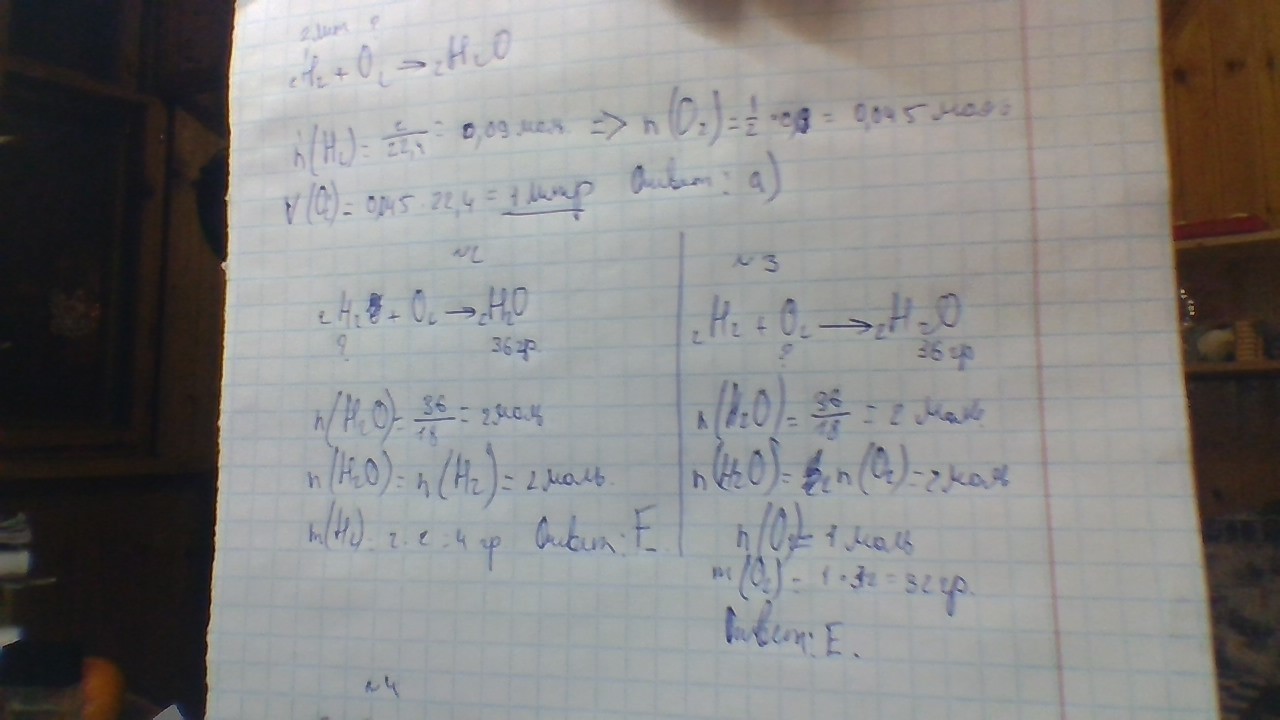 2 лит ?
2H2 + O2 → 2H2O
n(H2) = 2/22,4 = 0,09 мол. => n(O2) = 1/2 · 0,9 = 0,045 моль
V(O2) = 0,045 · 22,4 = 1 литр Ответ: а)
№2
2H2 + O2 → 2H2O
? 36 гр
n(H2O) = 36/18 = 2 моль
n(H2O) = n(H2) = 2 моль.
m(H2) = 2 · 2 = 4 гр Ответ: E
№3
2H2 + O2 → 2H2O
? 36 гр
n(H2O) = 36/18 = 2 моль.
n(H2O) = 2n(O2) = 2 моль
n(O2) = 1 моль
m(O2) = 1 · 32 = 32 гр.
Ответ: E.
№4